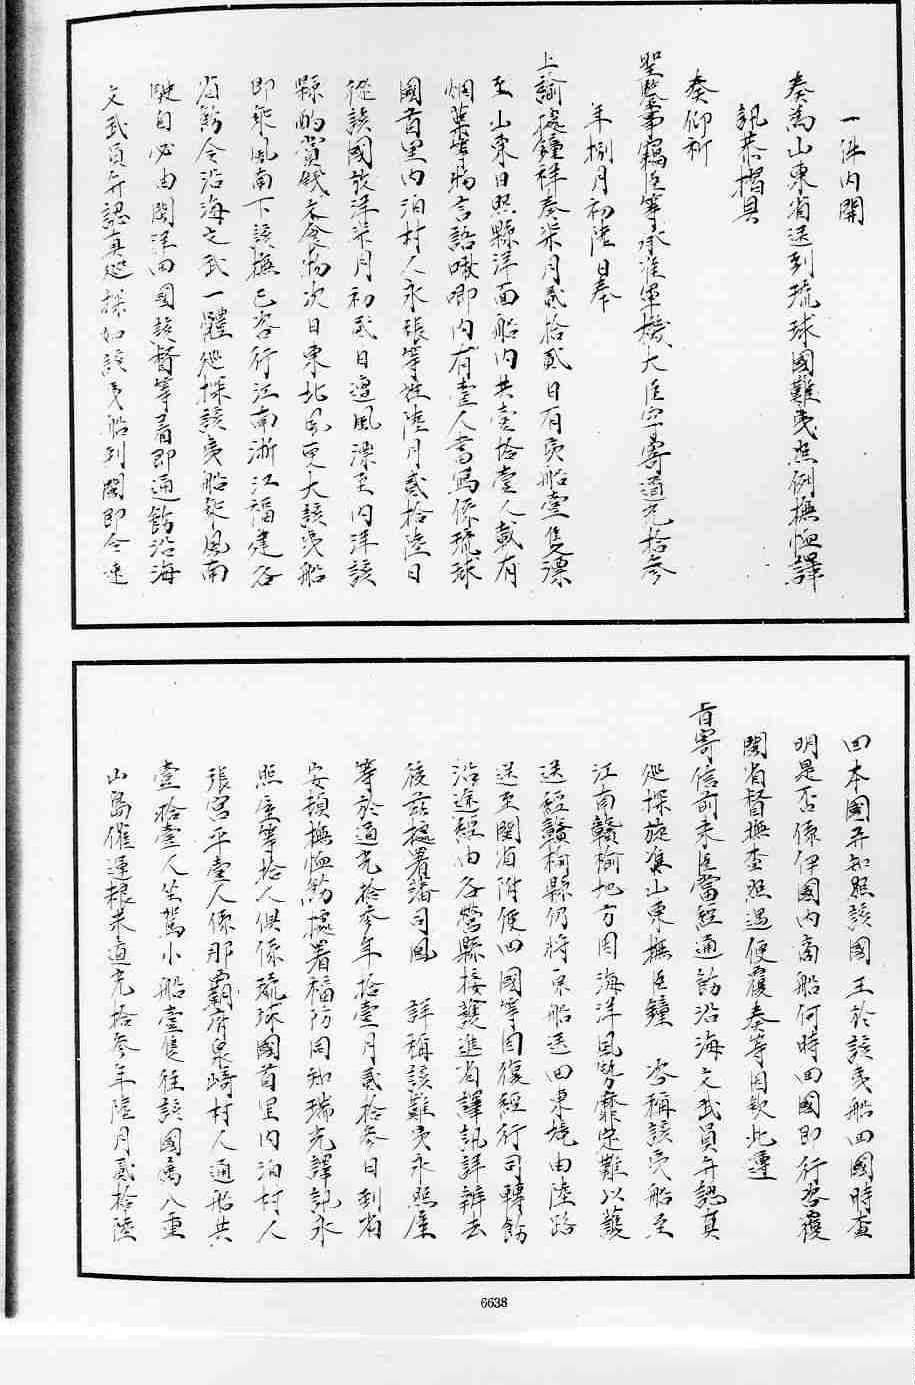 一件內開
奏為山東省送到琉球國難夷照例撫恤譯
訊恭摺具
奏仰祈
聖鑒事竊臣等承准軍機大臣字寄道光拾參
年捌月初陸日奉
上諭據鐘祥奏柒月貳拾貳日有夷船壹隻漂
至山東日照縣洋面船內共壹拾壹人載有
烟葉等物言語啾唧內有壹人書寫係琉球
國首里內泊村人永張等姓陸月貳拾陸日
從該國放洋柒月初貳日遭風漂至內洋該
縣酌賞錢衣食物次日東北風更大該夷船
即乘風南下該撫已咨行江南浙江福建各
省飭令沿海文武一體巡探該夷船乘風南
駛自必由閩洋回國該督等著即通飭沿海
文武員弁認真巡探如該夷船到閩即令速
回本國並知照該國王於該夷船回國時查
明是否係伊國內商船何時回國即行咨覆
閩省督撫查照遇便覆奏等因欽此遵
旨寄信前來臣當經通飭沿海文武員弁認真
巡探旋準山東撫臣鐘 咨稱該夷船至
江南贛榆地方因海洋風勢靡定難以護
送經贛榆縣仍將原船送回東境由陸路
送至閩省附便回國等因復經行司轉飭
沿途經由各營縣接護進省譯訊詳辦去
後茲據署藩司鳳 詳稱該難夷永熙庫
等於道光拾參年拾壹月貳拾參日到省
安頓撫恤飭據署福防同知瑞光譯訊永
熙庫等拾人俱係琉球國首里內泊村人
張宮平壹人係那霸府泉崎村人通船共
壹拾壹人坐駕小船壹隻往該國屬八重
山島催運粮米道光拾參年陸月貳拾陸
6638